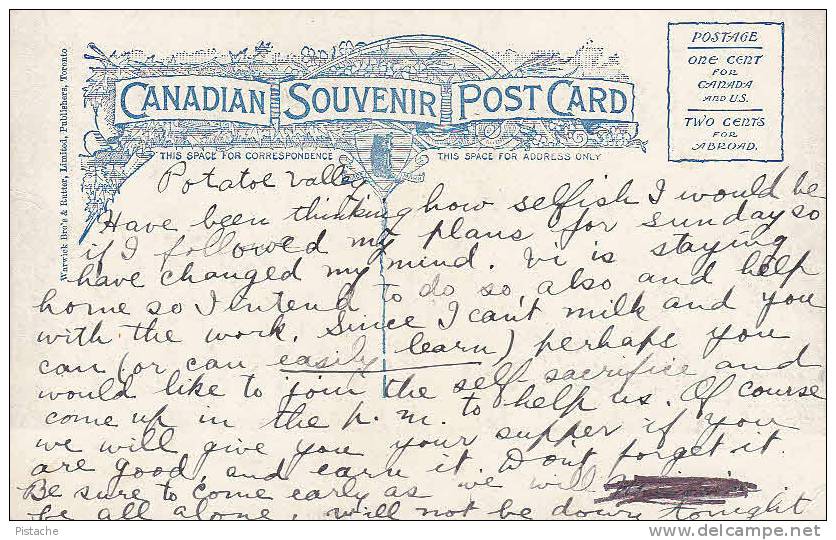 CANADIAN SOUVENIR POST CARD
THIS SPACE FOR CORRESPONDENCE
THIS SPACE FOR ADDRESS ONLY
POSTAGE
ONE CENT
FOR
CANADA
AND U.S.
TWO CENTS
FOR
ABROAD.
Warwick Bro's & Rutter, Limited, Publishers, Toronto
Potatoe Valley
Have been thinking how selfish I would be
if I followed my plans for Sunday so
have changed my mind. Vi is staying
home so I intend to do so also and help
with the work. Since I can't milk and you
can (or can easily learn) perhaps you
would like to join the self sacrifice and
come up in the p.m. to help us. Of course
we will give you your supper if you
are good and earn it. Dont forget it.
Be sure to come early as we will
be all alone. Will not be down tonight
Pistache
www.delcampe.net